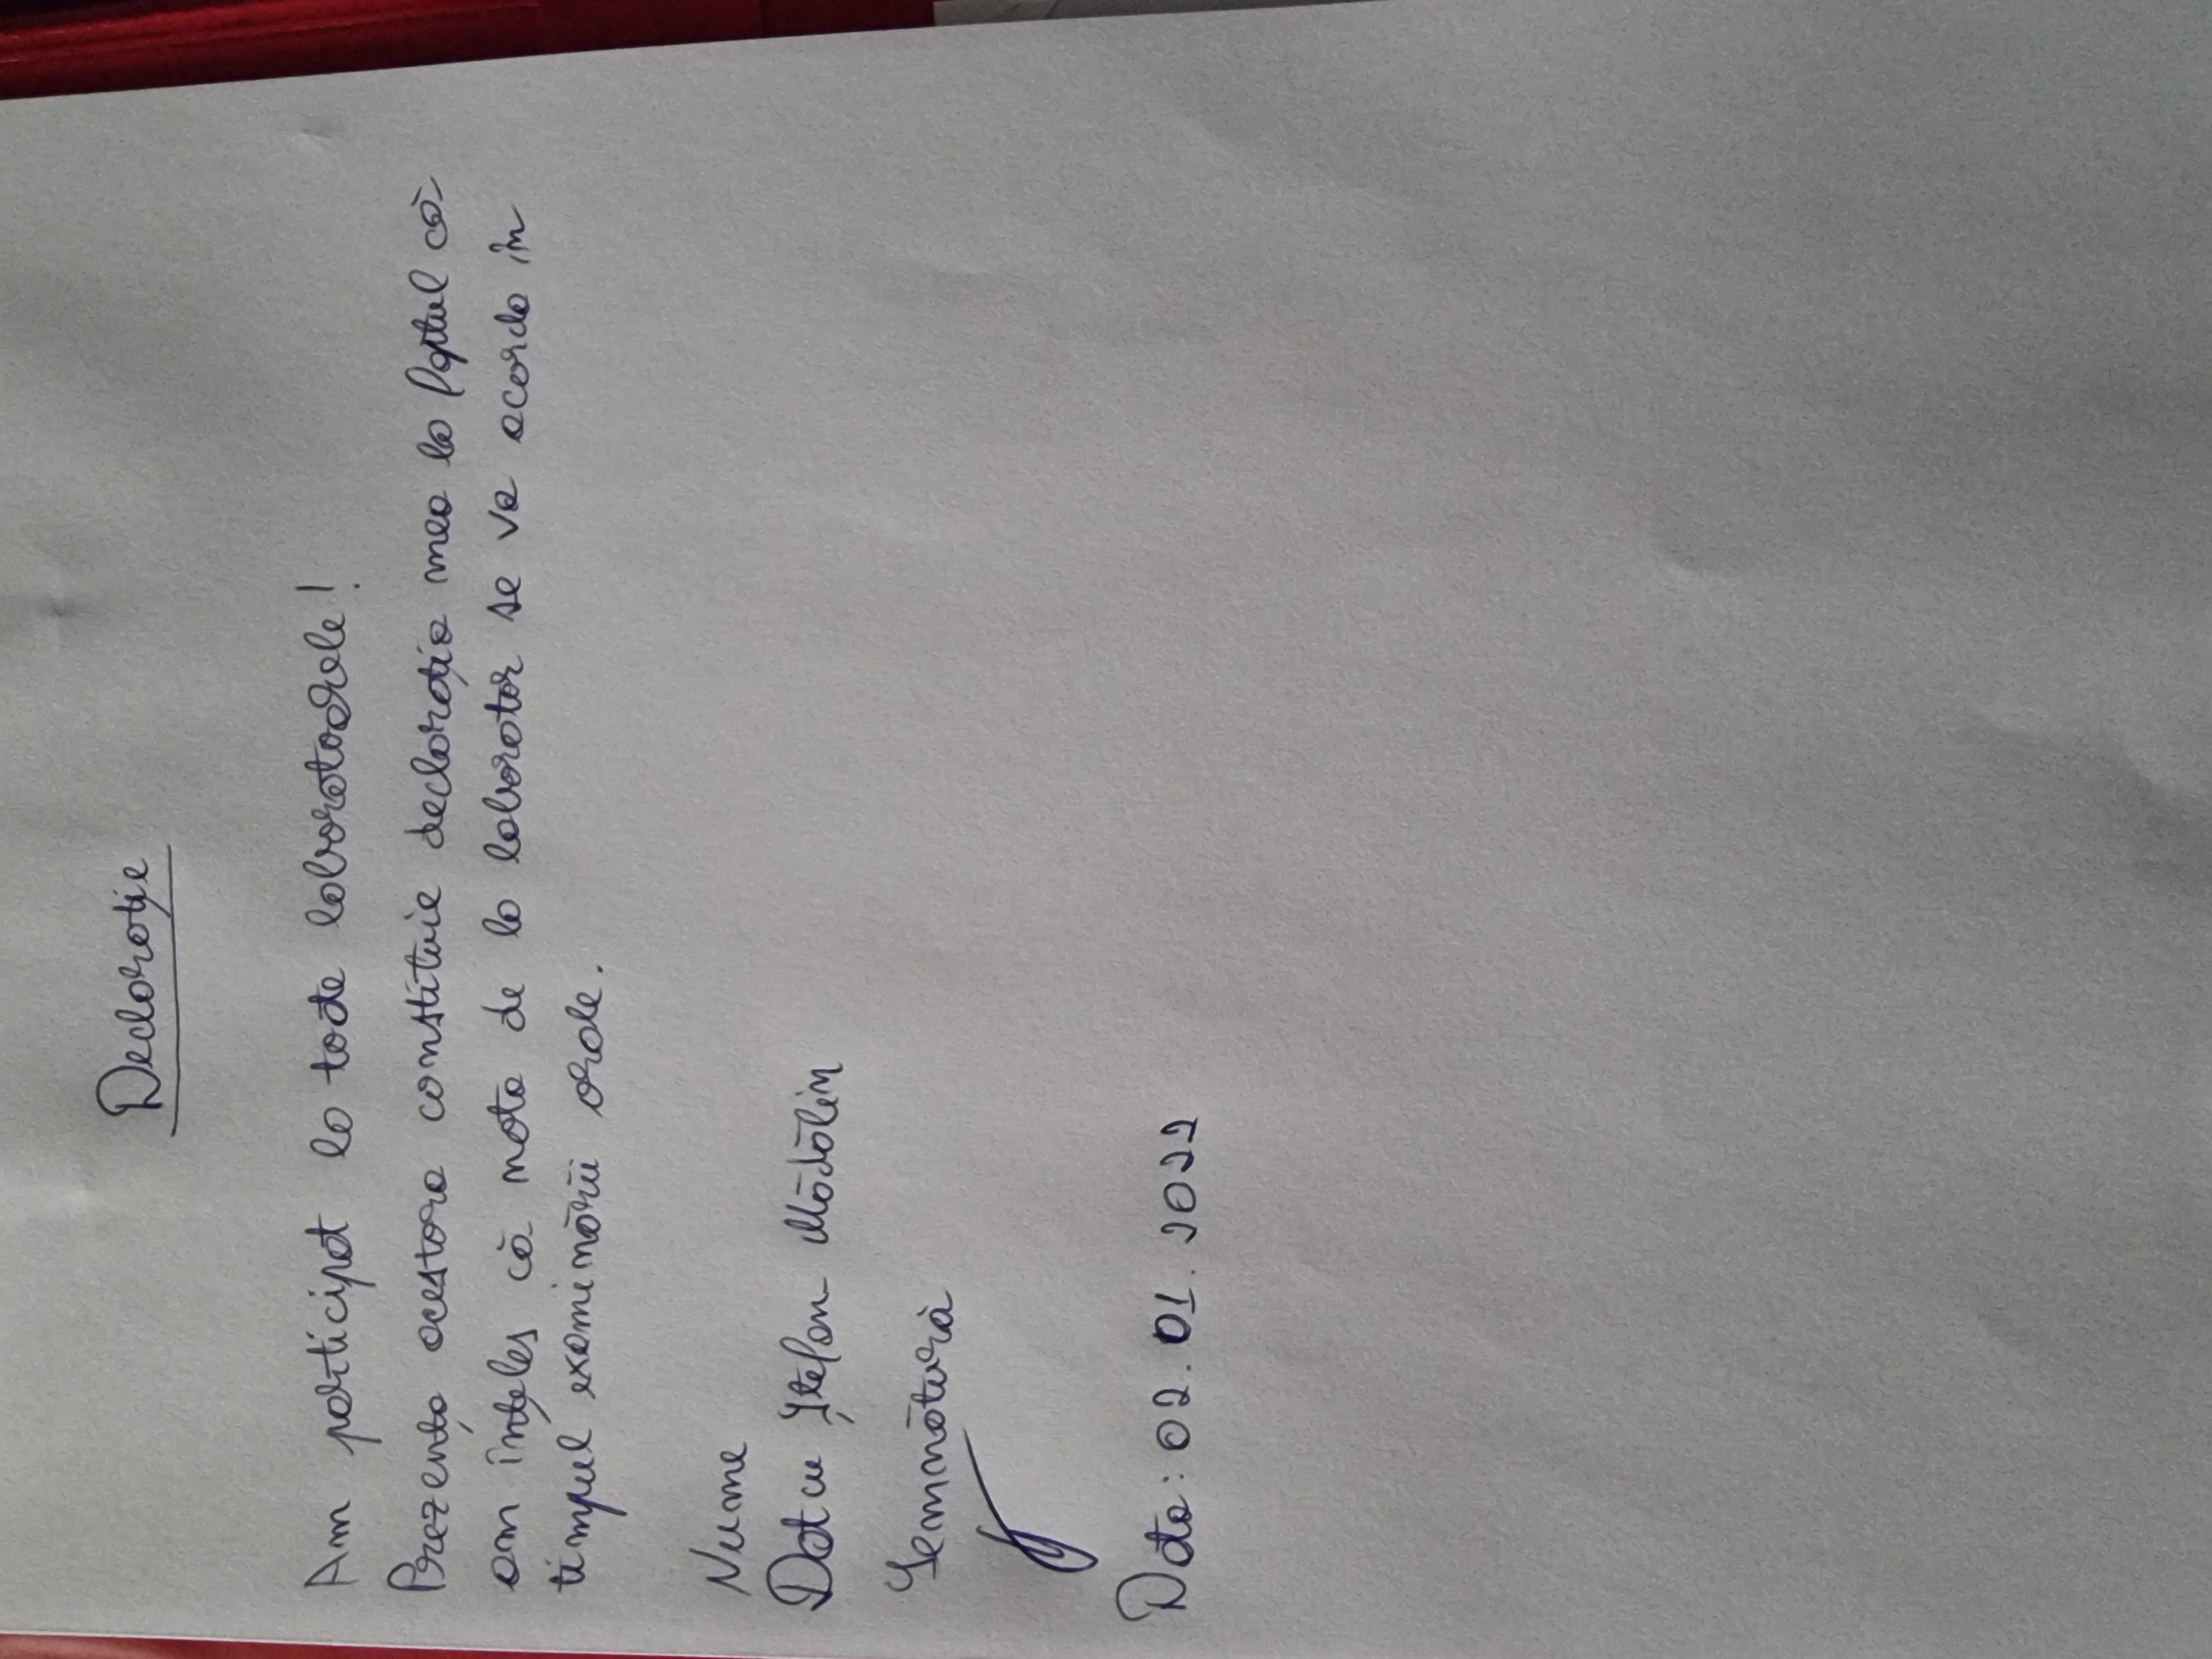 Declarație
Am participat la toate laboratoarele!
Prezența acestora constituie declarația mea la faptul că
am înțeles că nota de la laborator se va acorda în
timpul examinării orale.
Nume
Datcu Ștefan Mădălin
Semnătură
Data: 02.01.2022